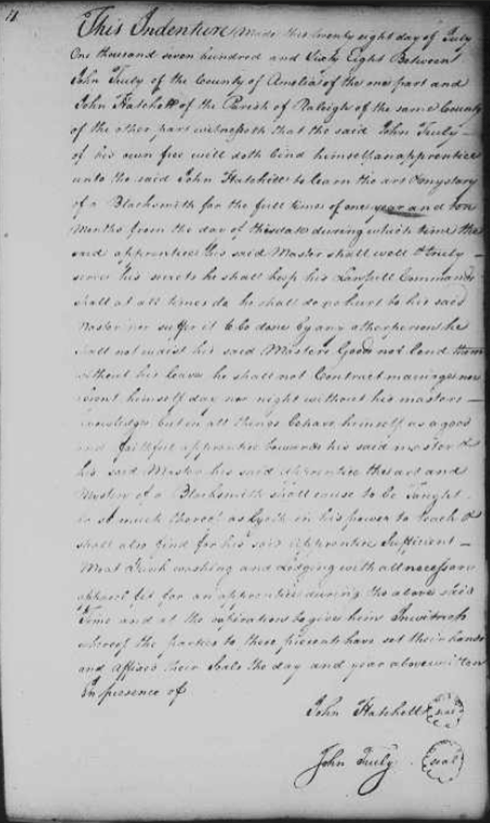 This Indenture made this twenty eight day of July
One thousand seven hundred and Sixty Eight Between
John Truly of the County of Amelia of the one part and
John Hatchett of the Parish of Raleigh of the same County
of the other part witnesseth that the said John Truly
of his own free will doth bind himself an apprentice
unto the said John Hatchett to learn the art & mystary
of a Blacksmith for the full time of one year and ten
Months from the day of this date during which time the
said apprentice his said Master shall well & truly
serve his secrets he shall keep his Lawfull Commands
shall at all times do he shall do no hurt to his said
Master nor suffer it to be done by any other person he
shall not his said Masters Goods not lend them
without his leave he shall not Contract marriage nor
absent himself day nor night without his masters
knowledge but in all things behave himself as a good
and faithful apprentice towards his said master &
his said Master his said apprentice the art and
Mystery of a Blacksmith shall cause to be Taught
or so much thereof as Lyeth in his power to teach &
shall also find for his said apprentice Sufficient
Meat Drink washing and Lodging with all necessary
apparel fit for an apprentice during the above said
Time and at the to give him In witness
whereof the parties to these presents have set their hands
and affixed their Seals the day and year above written
In presence of
John Hatchett seal
John Truly seal